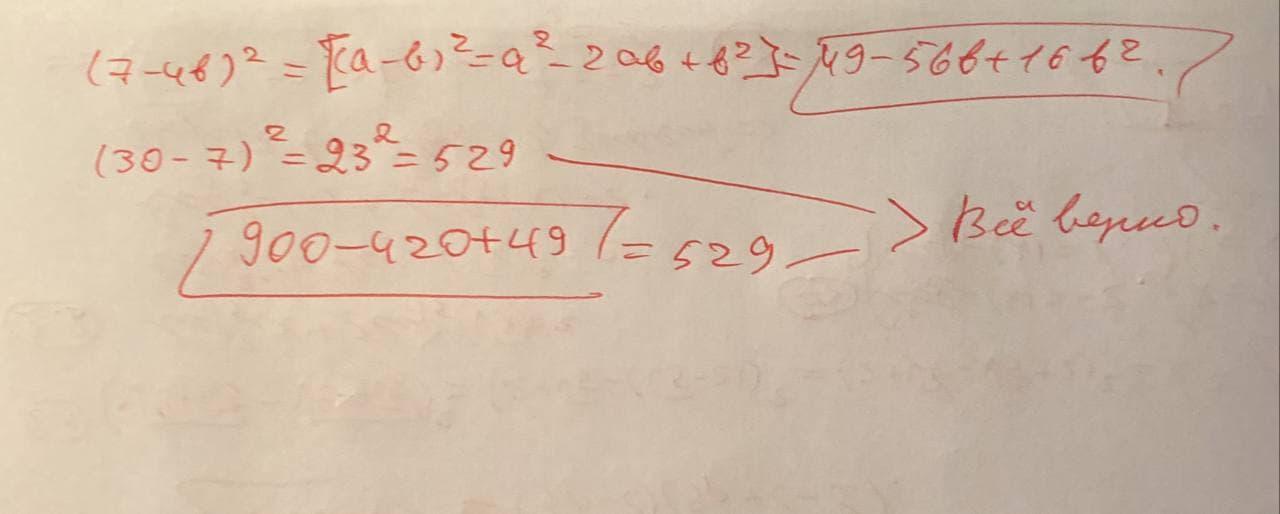 (7-4b)² = [(a-b)²=a²-2ab+b²]= 49-56b+16b².
(30-7)²=23²=529
900-420+49 = 529 > Всё верно.